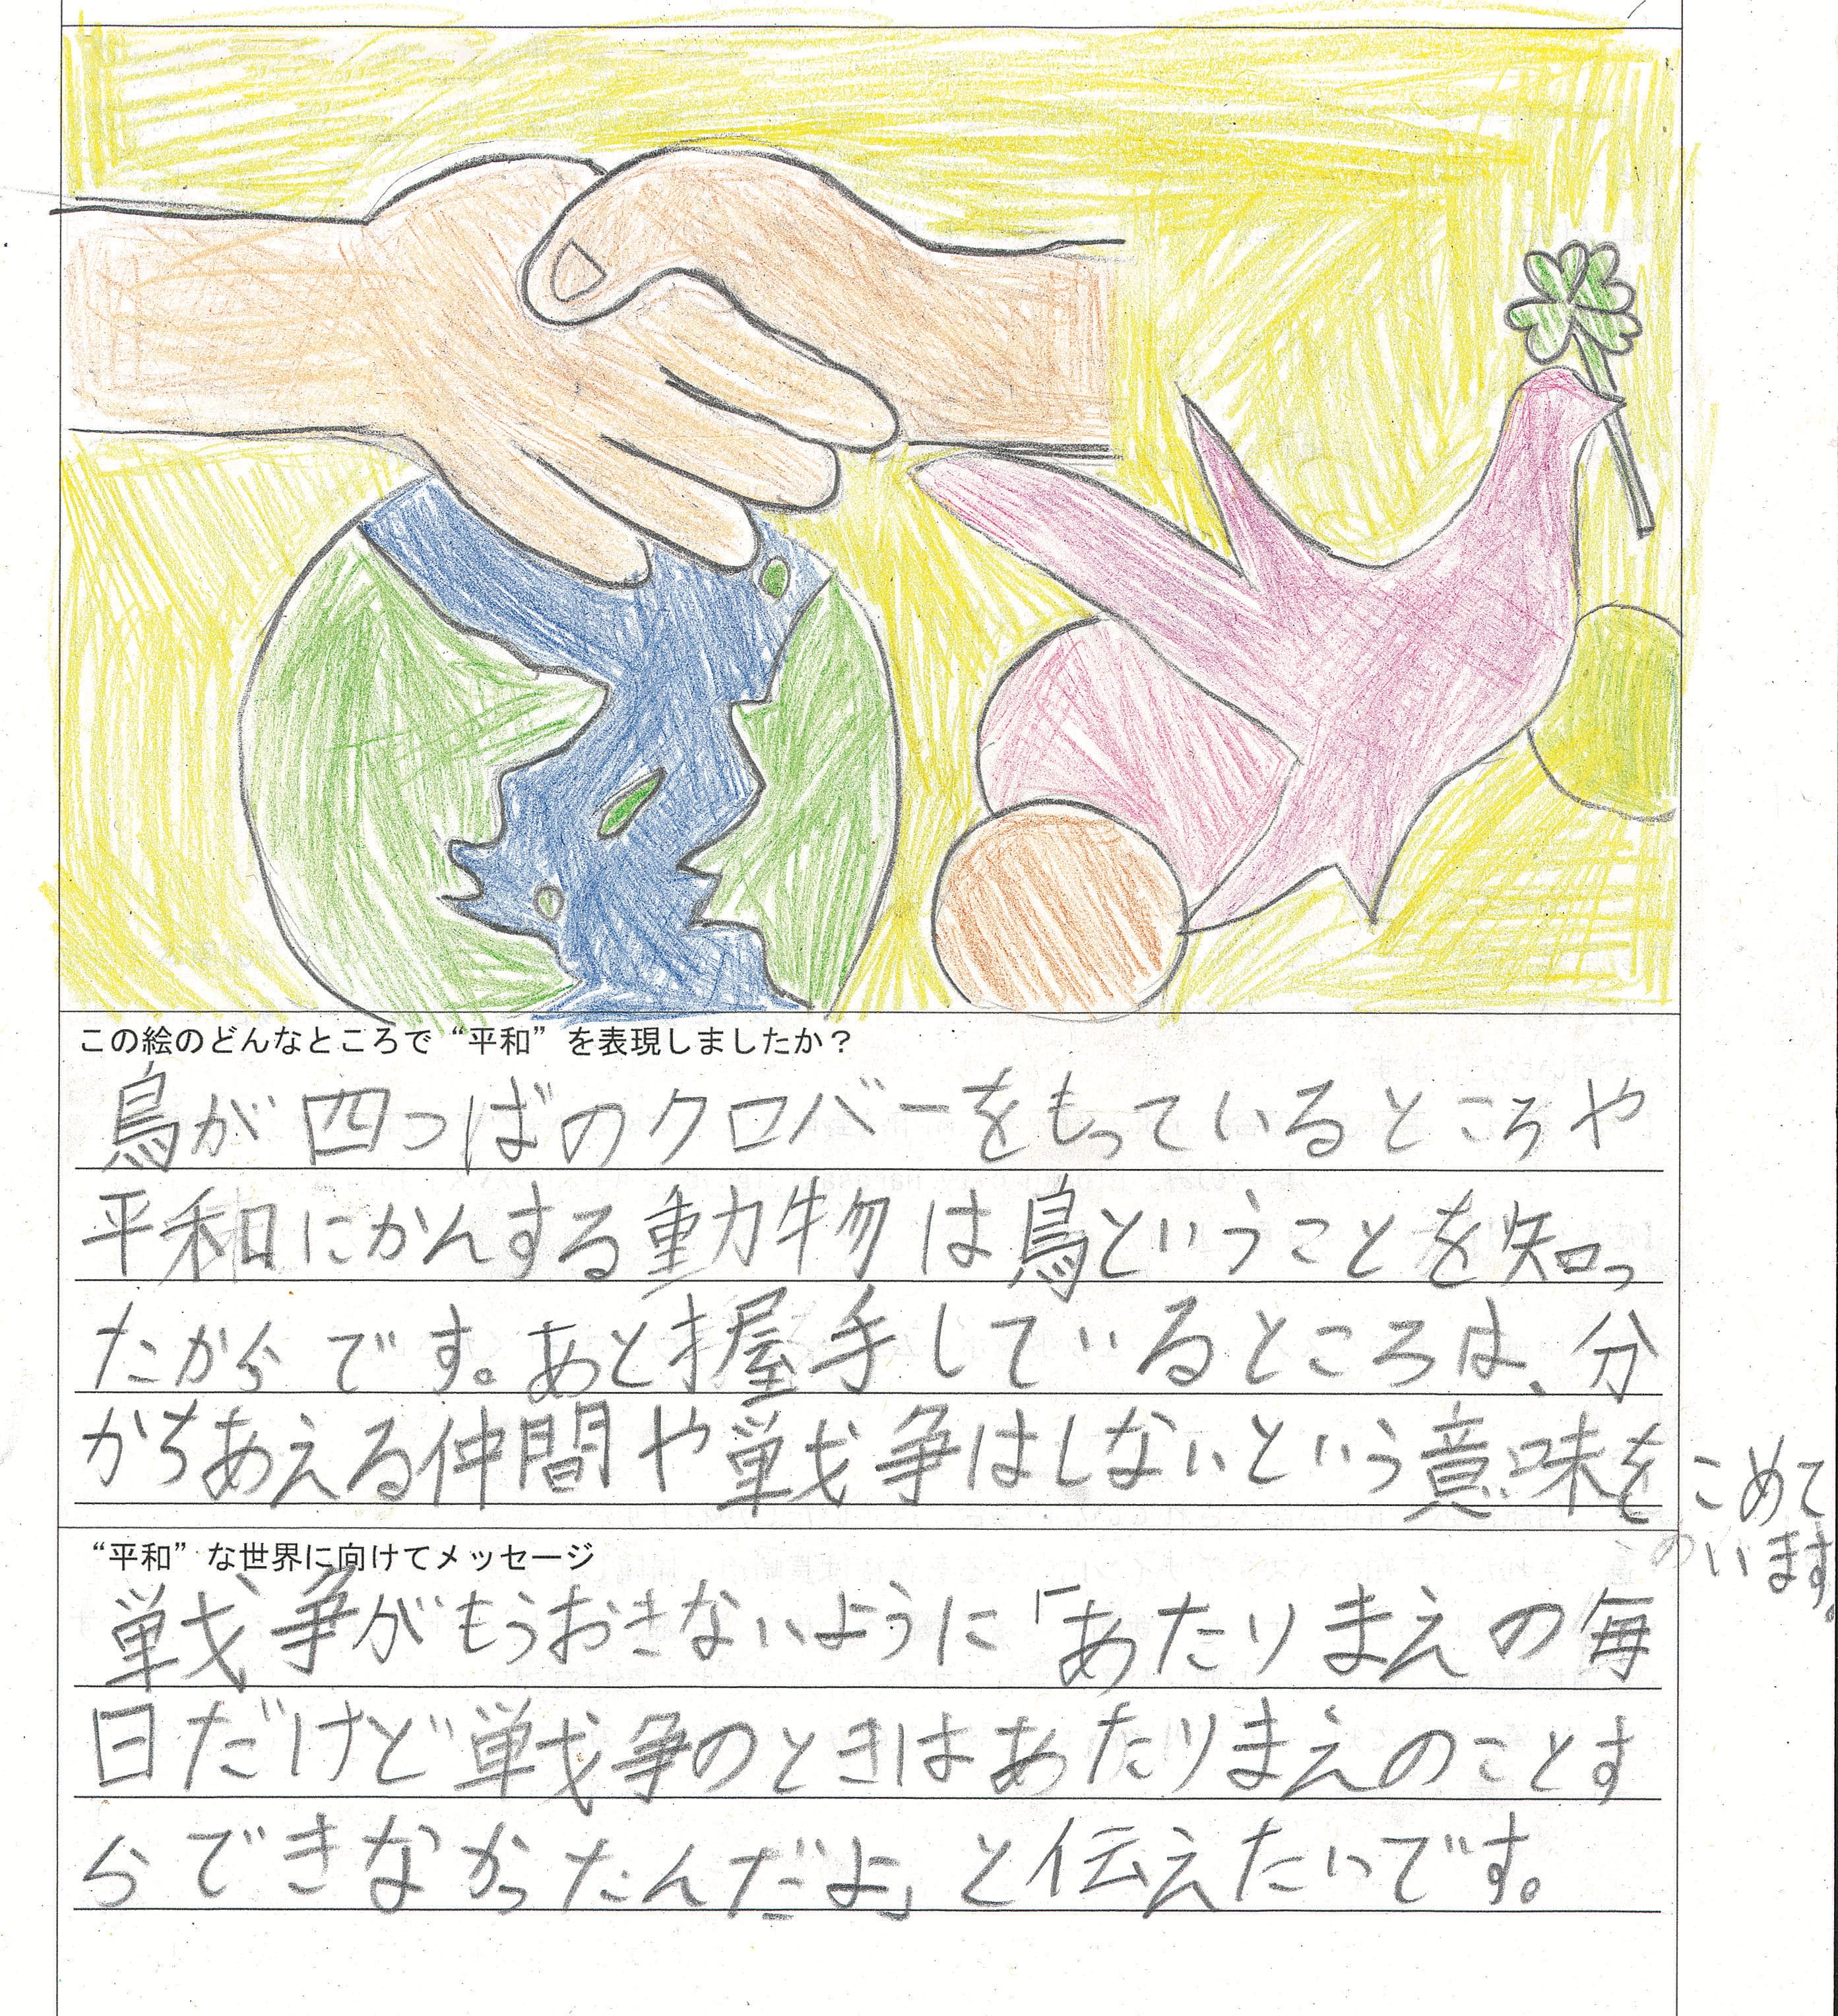 この絵のどんなところで“平和”を表現しましたか？
鳥が四つばのクローバーをもっているところや
平和にかんする動物は鳥ということを知っ
たからです。あと握手しているところは、分
かちあえる仲間や戦争はしないという意味をこめて
います。
“平和”な世界に向けてメッセージ
戦争がもうおきないように「あたりまえの毎
日だけど戦争のときはあたりまえのことす
らできなかったんだよ」と伝えたいです。